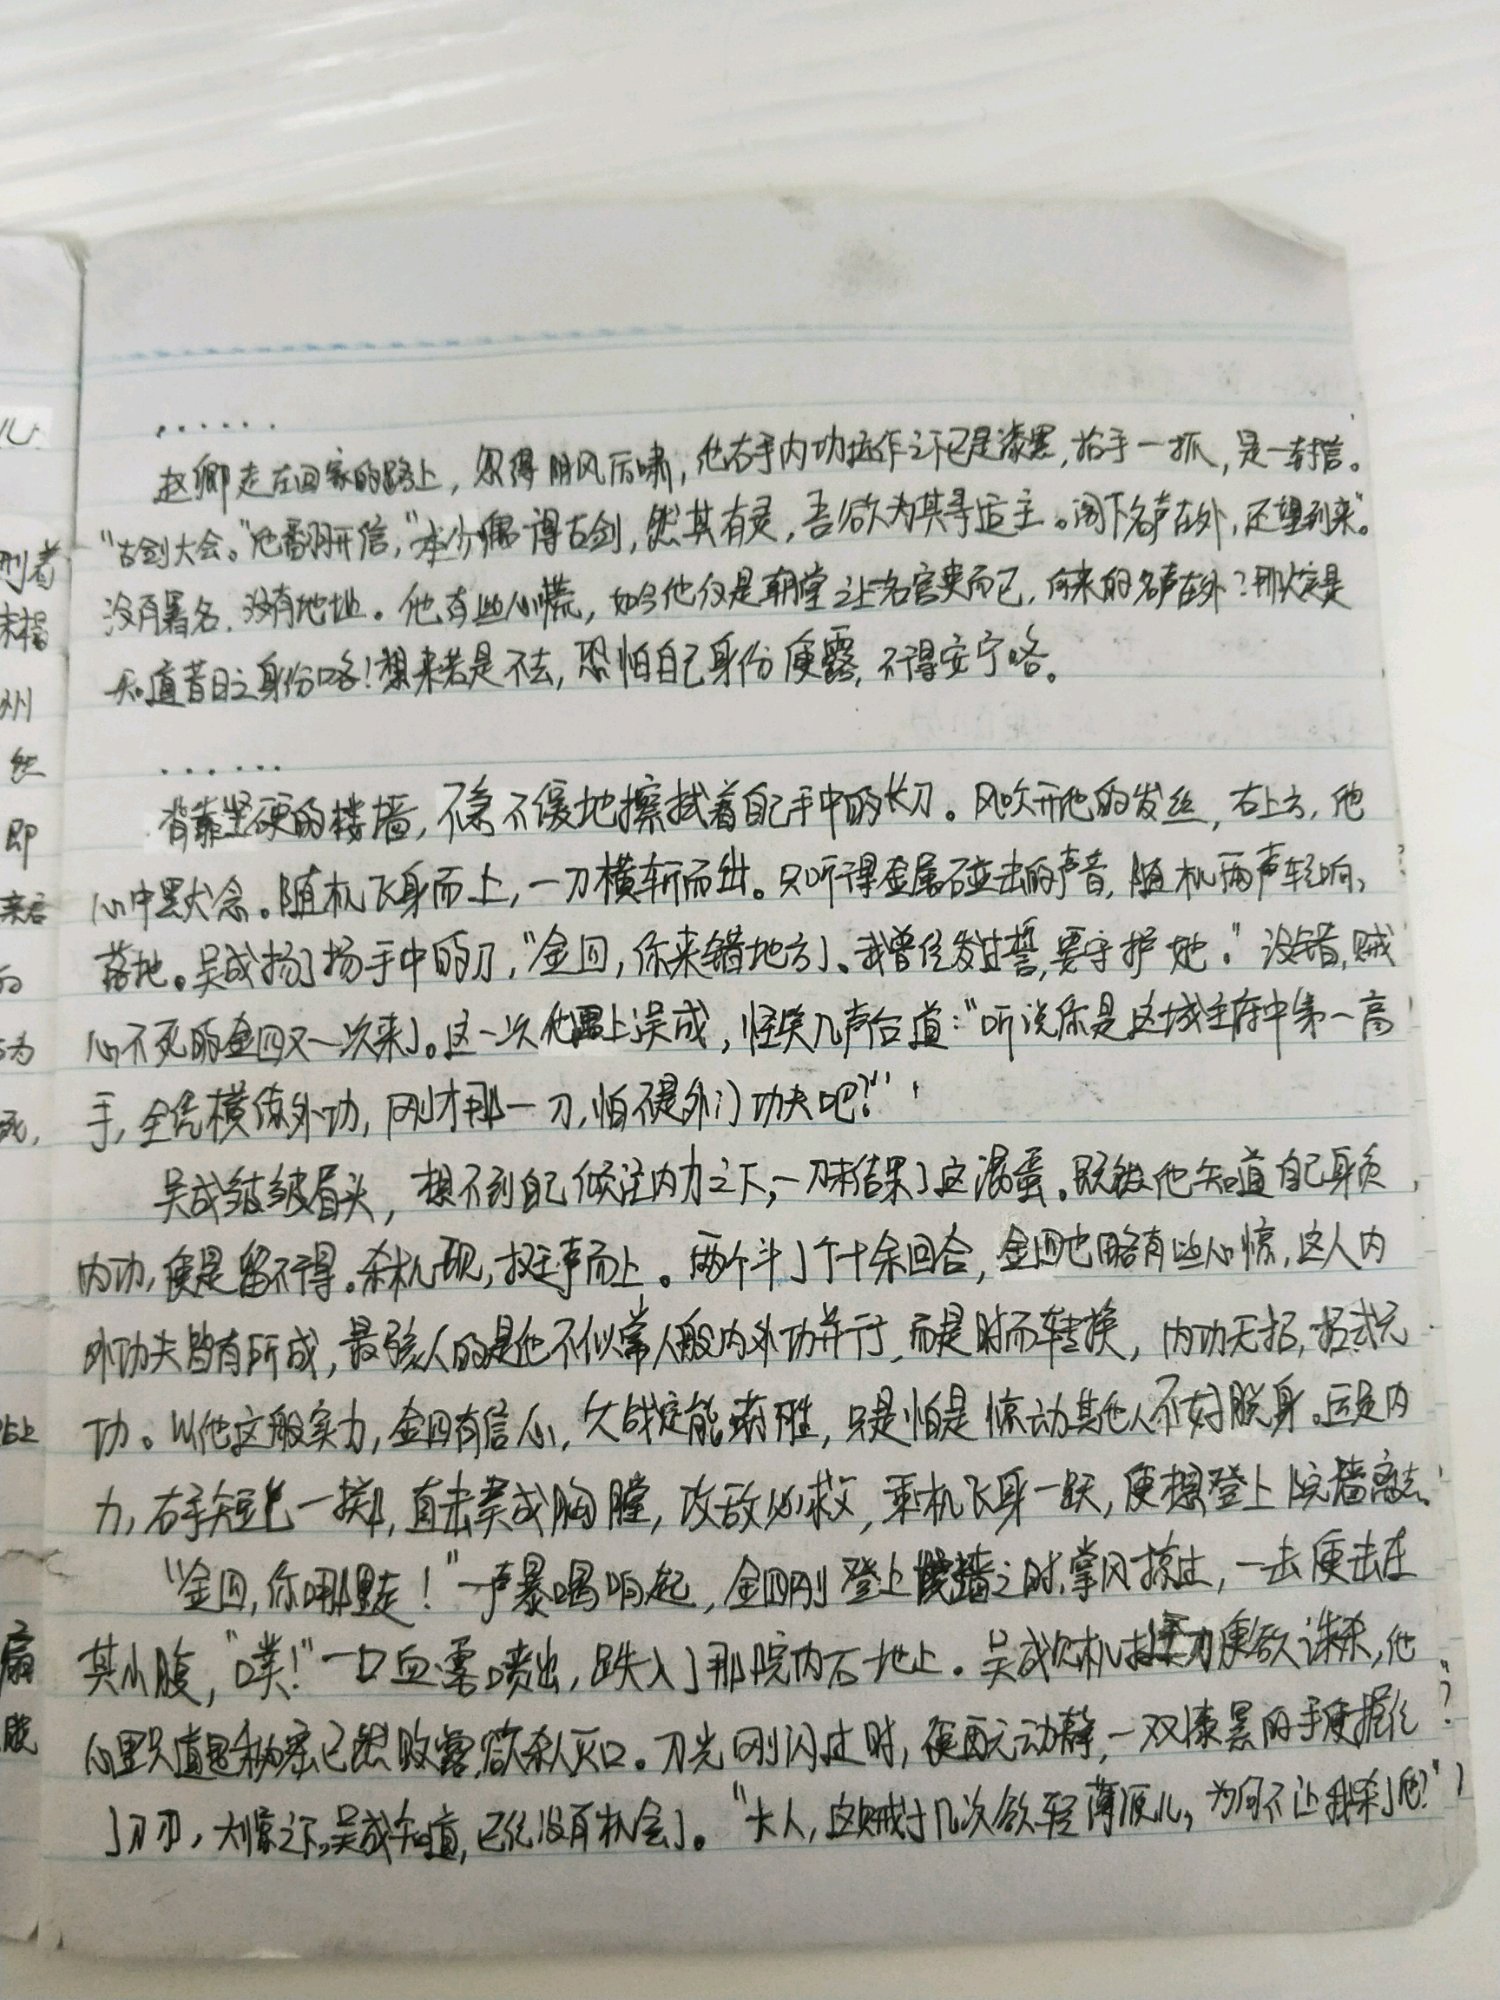 ......
赵卿走在回家的路上，忽得阴风后啸，他右手内功运作之下已是漆黑，抬手一抓，是一封信。
"古剑大会。"他翻开信，"本少偶得古剑，然其有灵，吾欲为其寻适主。阁下名声在外，还望到来"。
没有署名，没有地址。他有些心慌，如今他仅是朝堂之上名官吏而已，何来的名声在外？那定是
知道昔日之身份咯！想来若是不去，恐怕自己身份便露，不得安宁咯。
......
背靠坚硬的楼墙，不急不缓地擦拭着自己手中的长刀。风吹开他的发丝，右上方，他
心中默念。随机飞身而上，一刀横斩而出。只听得金属碰击的声音，随机两声轻响，
落地。吴成扬了扬手中的刀，"金四，你来错地方了。我曾经发过誓，要守护她。"没错，贼
心不死的金四又一次来了。这一次他遇上吴成，怪笑几声后道："听说你是这城主府中第一高
手，全凭横练外功，刚才那一刀，怕不是外门功夫吧？"
吴成皱皱眉头，想不到自己倾注内力之下，一刀未结果了这混蛋。既被他知道自己身负
内功，便是留不得。杀机现，挺声而上。两个斗了个十余回合，金四也略有些心惊，这人内
外功夫皆有所成，最骇人的是他不似常人般内外功并行，而是时而转换，内功无招，招式无
功。以他这般实力，金四有信心，久战定能获胜，只是怕是惊动其他人不好脱身。运足内
力，右手短匕一掷，直击吴成胸膛，攻敌必救，乘机飞身一跃，便想登上院墙离去。
"金四，你哪里走！"一声暴喝响起，金四刚登上院墙之时，掌风掠过，一击便击在
其小腹，"噗！"一口血雾喷出，跌入了那院内石地上。吴成见机提刀便欲诛杀，他
心里只道是秘密已然败露，欲杀人灭口。刀光刚闪过时，便再无动静，一双漆黑的手便握住
了刀刃，大惊之下，吴成知道，已经没有机会了。"大人，这贼子几次欲轻薄源儿，为何不让我杀了他？"